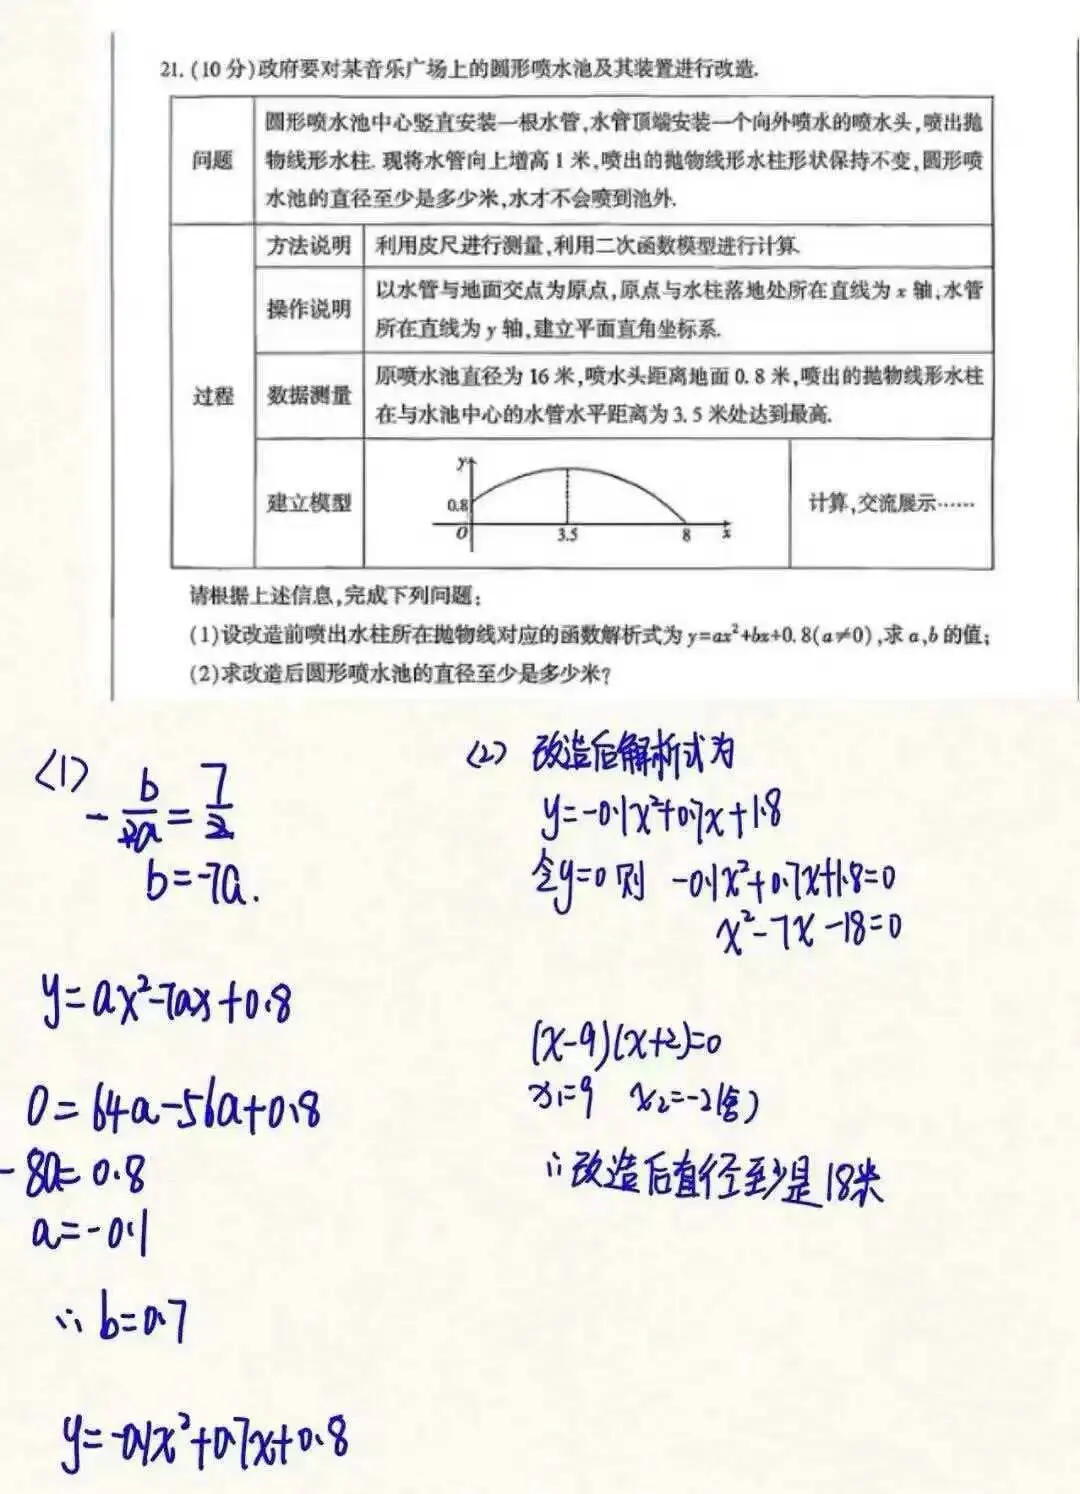 21. (10 分)政府要对某音乐广场上的圆形喷水池及其装置进行改造.
问题
圆形喷水池中心竖直安装一根水管,水管顶端安装一个向外喷水的喷水头,喷出抛
物线形水柱. 现将水管向上增高 1 米,喷出的抛物线形水柱形状保持不变,圆形喷
水池的直径至少是多少米,水才不会喷到池外.
过程
方法说明
利用皮尺进行测量,利用二次函数模型进行计算.
操作说明
以水管与地面交点为原点,原点与水柱落地处所在直线为 x 轴,水管
所在直线为 y 轴,建立平面直角坐标系.
数据测量
原喷水池直径为 16 米,喷水头距离地面 0.8 米,喷出的抛物线形水柱
在与水池中心的水管水平距离为 3.5 米处达到最高.
建立模型
y
0.8
O
3.5
8
x
计算,交流展示……
请根据上述信息,完成下列问题:
(1)设改造前喷出水柱所在抛物线对应的函数解析式为 y=ax²+bx+0.8(a≠0),求 a,b 的值;
(2)求改造后圆形喷水池的直径至少是多少米?
(1)
-b/2a=7/2
b=-7a.
y=ax²-7ax+0.8
0=64a-56a+0.8
-8a=0.8
a=-0.1
∴b=0.7
y=-0.1x²+0.7x+0.8
(2) 改造后解析式为
y=-0.1x²+0.7x+1.8
令y=0 则 -0.1x²+0.7x+1.8=0
x²-7x-18=0
(x-9)(x+2)=0
x₁=9 x₂=-2(舍)
∴改造后直径至少是18米